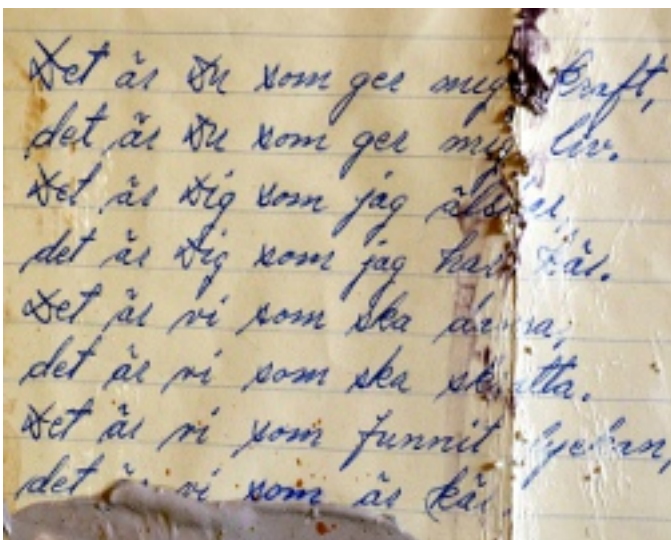 Det är Du som ger mig kraft,
det är Du som ger mig liv.
Det är Dig som jag älskar,
det är Dig som jag har kär.
Det är vi som ska
det är vi som ska skratta.
Det är vi som funnit lyckan,
det är vi som är kär.